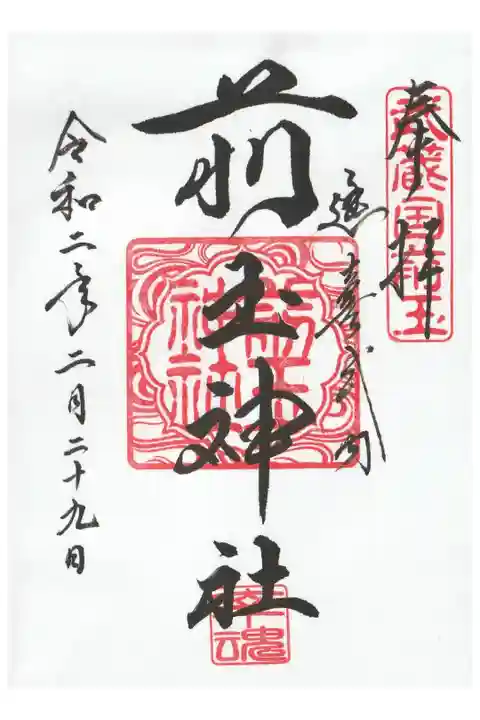 奉拝
武蔵国埼玉
延喜式内
前玉神社
前玉神社
幸魂
令和二年二月二十九日